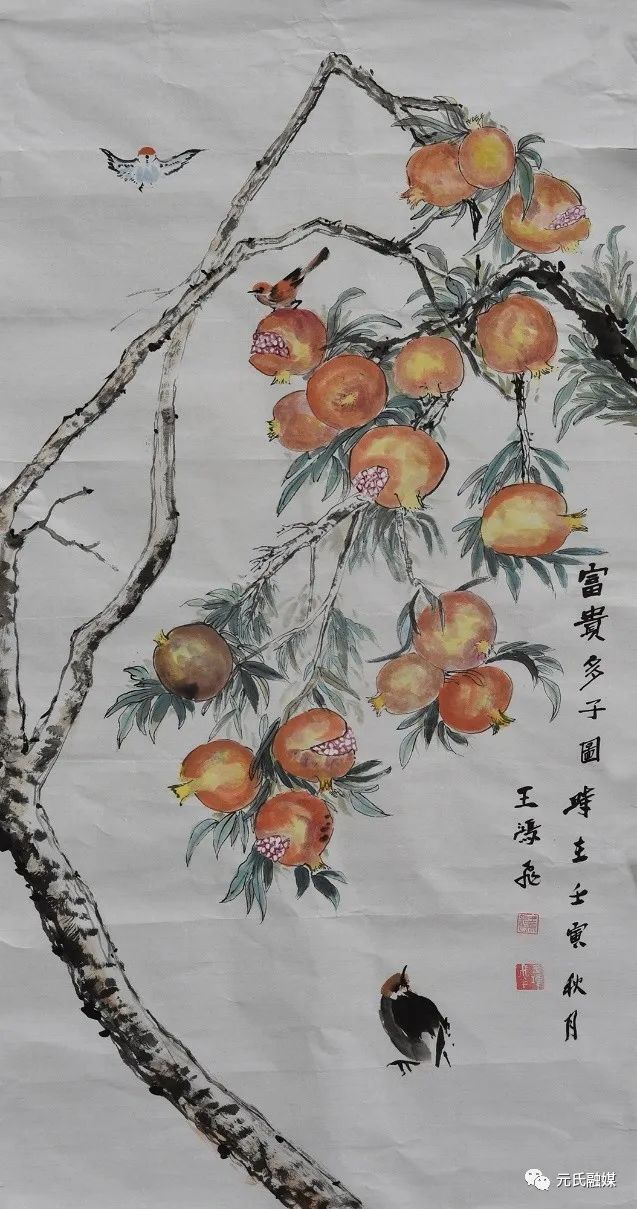 富貴多子圖 時在壬寅秋月
王
元氏融媒